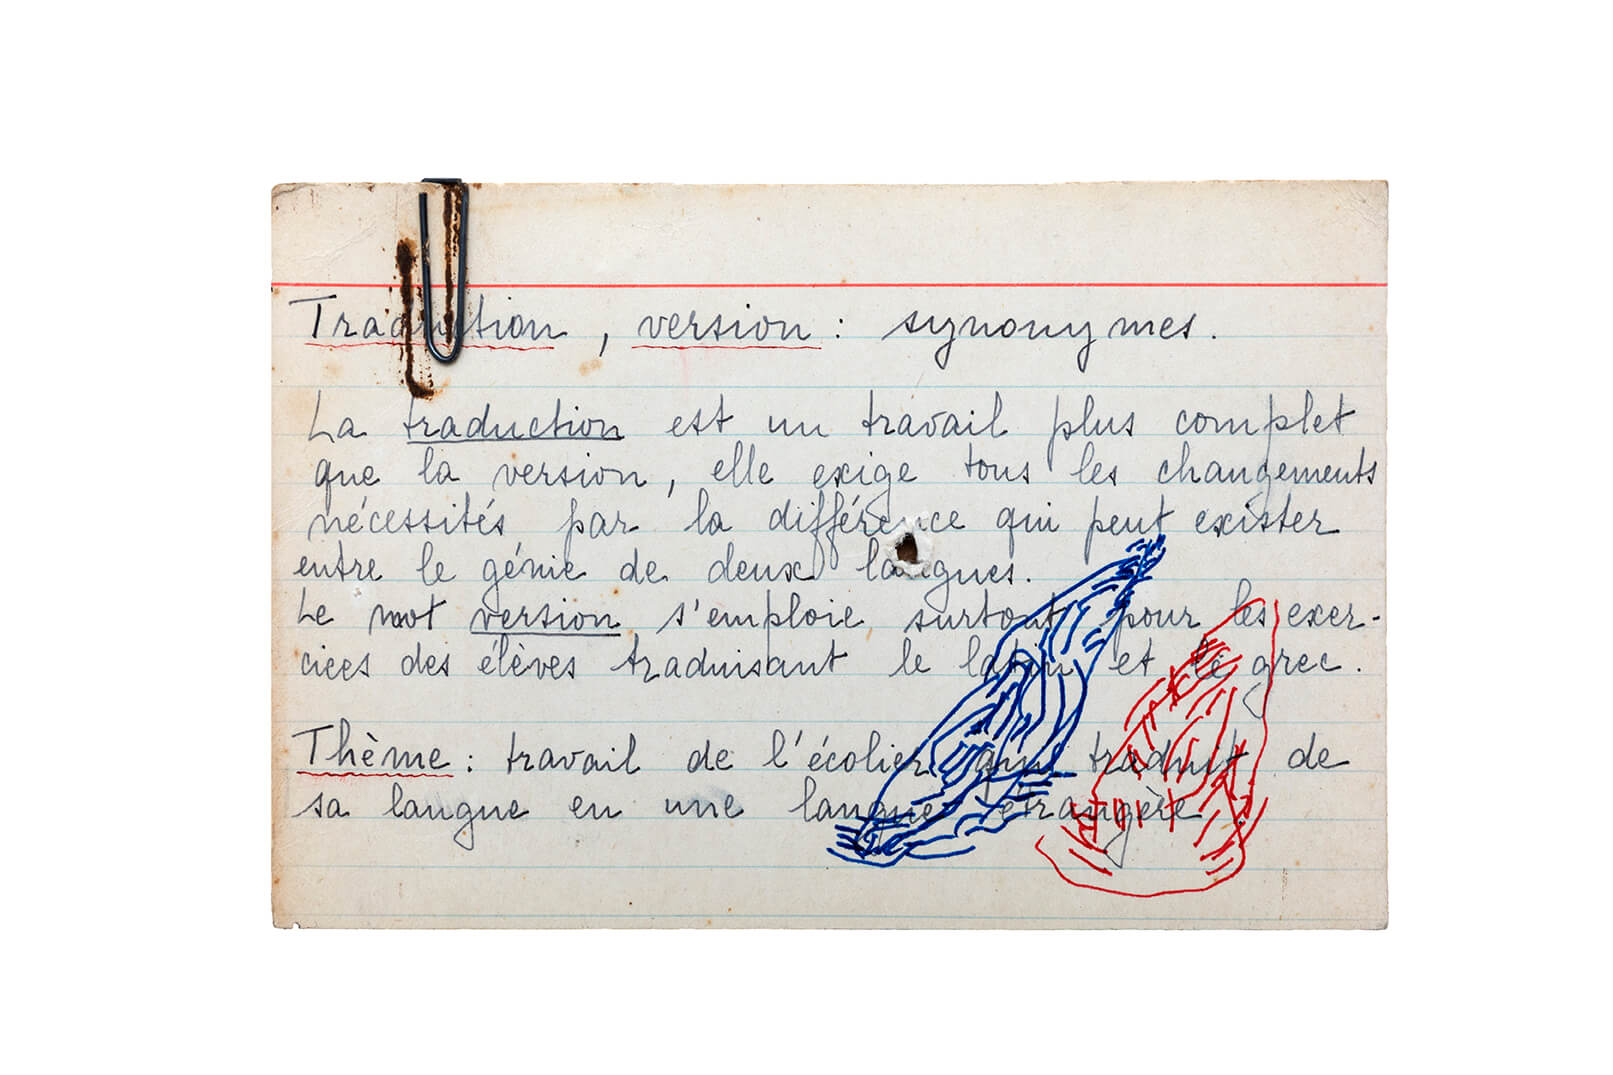 Traduction, version : synonymes.
La traduction est un travail plus complet
que la version, elle exige tous les changements
nécessités par la différence qui peut exister
entre le génie de deux langues.
Le mot version s'emploie surtout pour les exer-
cices des élèves traduisant le latin et le grec.
Thème : travail de l'écolier qui traduit de
sa langue en une langue étrangère.